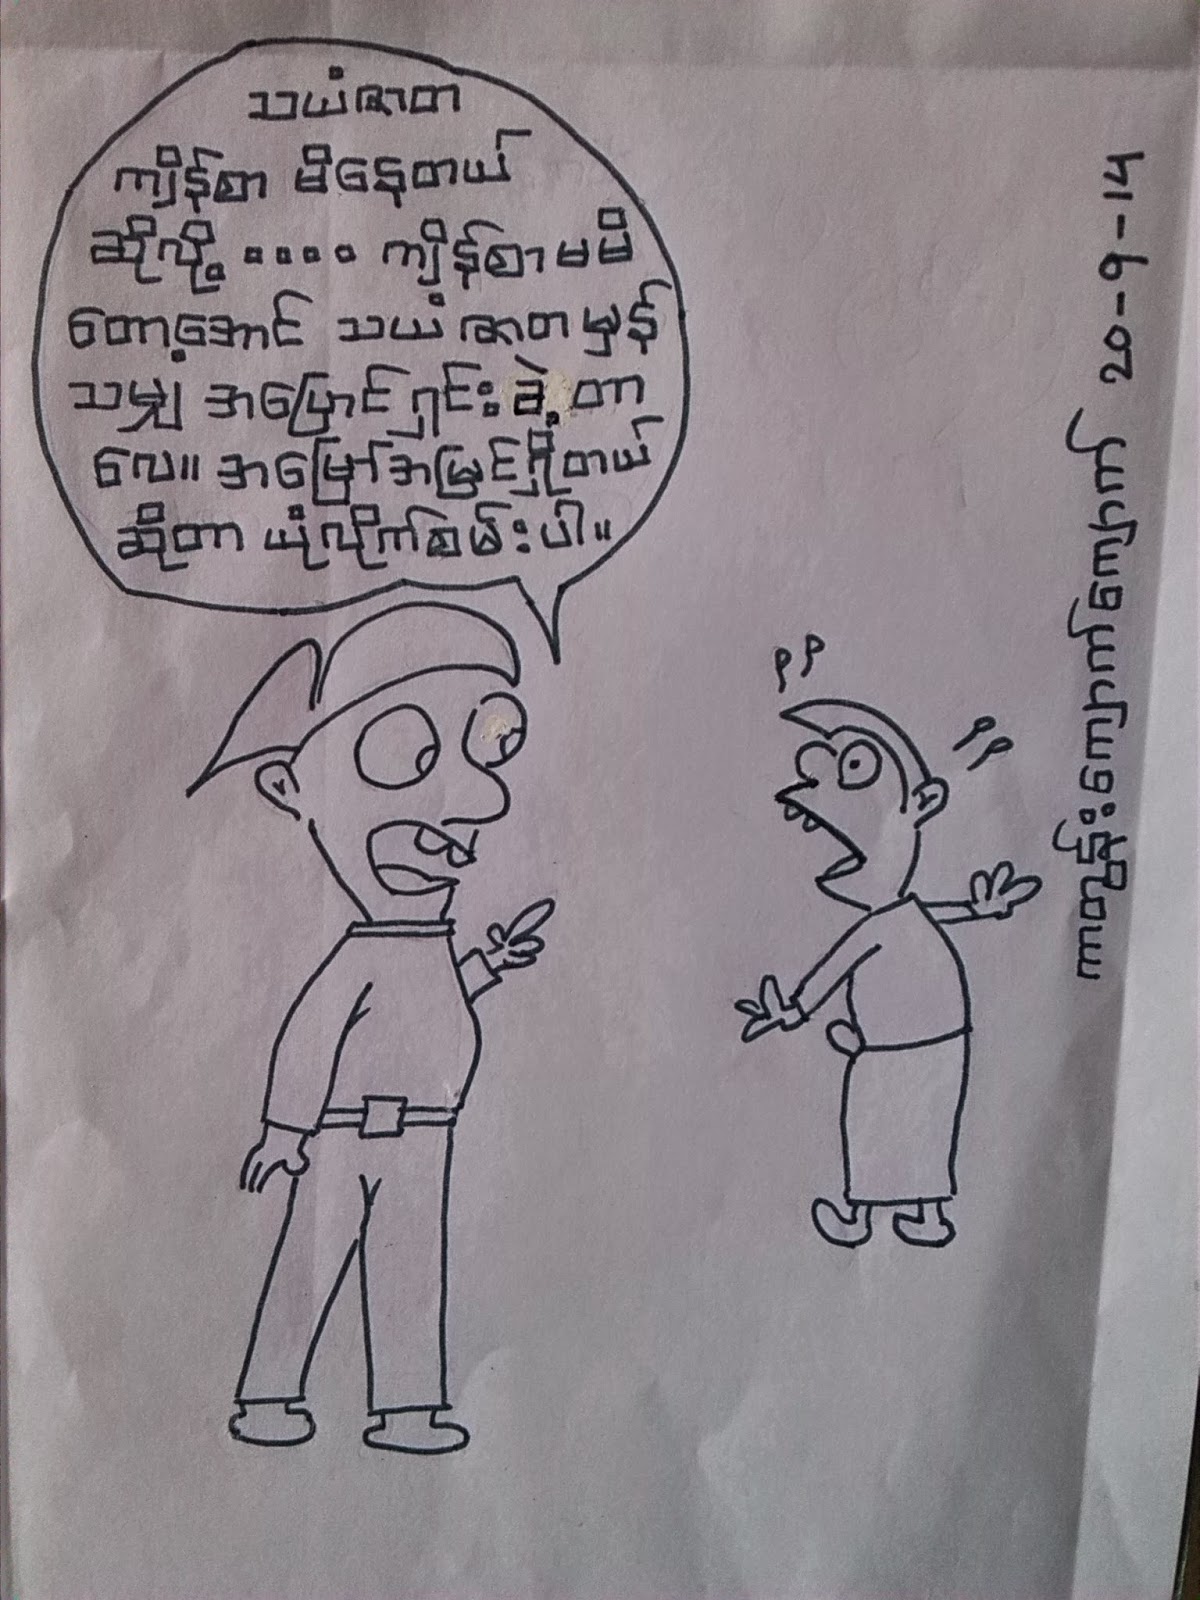 သယံဇာတ
ကျိန်စာ မိနေတယ်
ဆိုလို့ .... ကျိန်စာမမိ
တော့အောင် သယံဇာတမှန်
သမျှ အပြောင်ရှင်းခဲ့တာ
လေ။ အမြော်အမြင်ရှိတယ်
ဆိုတာ ယုံလိုက်စမ်းပါ။
ကာတွန်းကျောက်ကျောက် 20-9-14